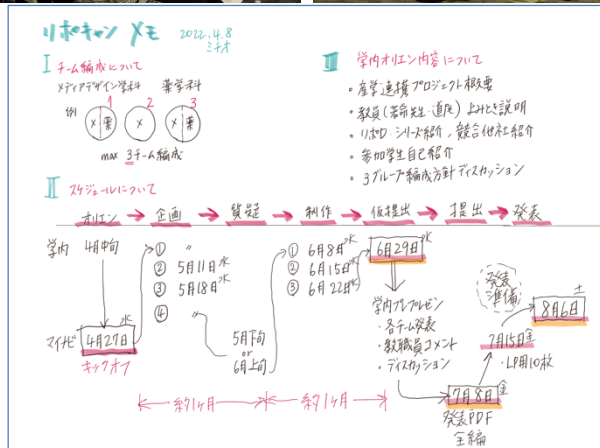 リポキャン メモ 2022.4.8
ミチオ
I チーム編成について
メディアデザイン学科 薬学科
例 1 2 3
メ 薬 メ メ 薬
max 3チーム編成
II スケジュールについて
III 学内オリエン内容について
・産学連携プロジェクト概要
・教員(若命先生・道尾)よみとき説明
・リポD シリーズ紹介、競合他社紹介
・参加学生自己紹介
・3グループ編成方針ディスカッション
オリエン → 企画 → 質疑 → 制作 → 仮提出 → 提出 → 発表
学内 4月中旬
マイナビ 4月27日 水
キックオフ
① 〃
② 5月11日 水
③ 5月18日 水
④ 〃
5月下旬
or
6月上旬
① 6月8日 水
② 6月15日 水
③ 6月22日 水
約1ヶ月 約1ヶ月
6月29日 水
学内プレプレゼン
・各チーム発表
・教職員コメント
・ディスカッション
7月8日 金
発表PDF
全編
7月15日 金
・LP用10枚
発表
準備
8月6日 土